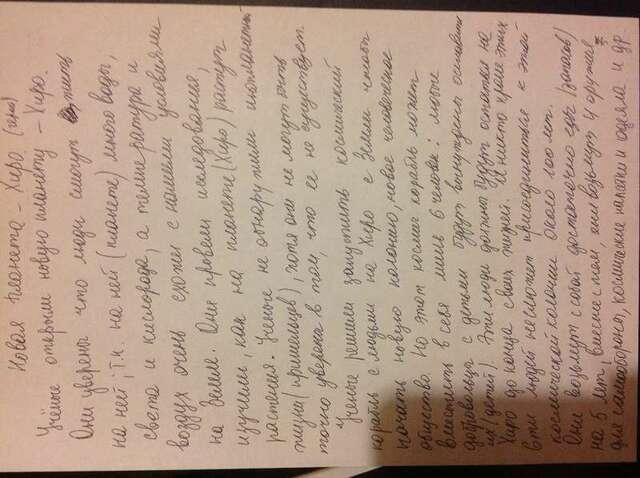 Новая планета - Хиро. (гено)
Учёные открыли новую планету - Хиро.
Они уверены что люди смогут жить
на ней, т.к. на ней (планете) много воды,
света и кислорода, а температура и
воздух очень схожи с нашими условиями
на Земле. Они провели исследования,
изучили, как на планете (Хиро) растут
растения. Ученые не обнаружили инопланетной
жизни (пришельцев), хотя они не могут быть
точно уверена в том, что ее не существует.
Ученые решили запустить космический
корабль с людьми на Хиро с Земли чтобы
начать новую колонию, новое человеческое
общество. Но этот космич корабль может
вместить в себя лише 6 человек! люди
добровольцы с детьми будут вынуждены оставить
их (детей). Эти люди должны будут остаться на
Хиро до конца своих жизней. И никто кроме этих
6ти людей не сможет присоединиться к этой
космической колонии около 100 лет.
Они возьмут с собой достаточно еды (запасов)
на 5 лет, вместе с ней, они возьмут и оружие
для самообороны, космические палатки и одежда и др